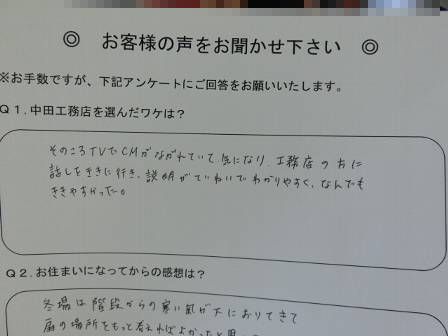 ◎ お客様の声をお聞かせ下さい ◎
※お手数ですが、下記アンケートにご回答をお願いいたします。
Q1.中田工務店を選んだワケは?
そのころTVでCMがながれていて気になり、工務店の方に
話しをききに行き、説明がていねいでわかりやすく、なんでも
ききやすかった。
Q2.お住まいになってからの感想は?
冬場は階段からの寒い気が下におりてきて
扉の場所をもっと考えればよかったと思